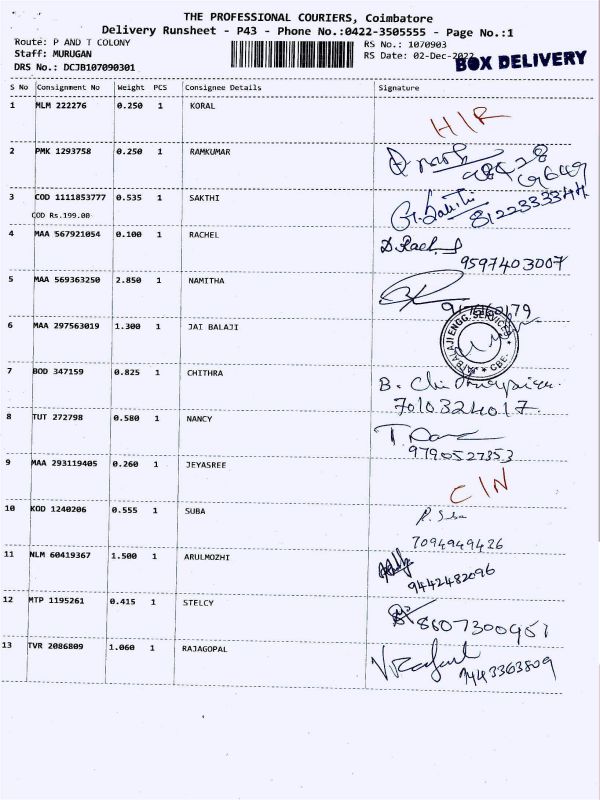 THE PROFESSIONAL COURIERS, Coimbatore
Delivery Runsheet - P43 - Phone No.:0422-3505555 - Page No.:1
Route: P AND T COLONY
RS No.: 1070903
Staff: MURUGAN
RS Date: 02-Dec-2022
DRS No.: DCJB107090301
BOX DELIVERY
S No Consignment No Weight PCS Consignee Details Signature
1 MLM 222276 0.250 1 KORAL
H/R
2 PMK 1293758 0.250 1 RAMKUMAR
3 COD 1111853777 0.535 1 SAKTHI
8122333344
COD Rs.199.00
4 MAA 567921054 0.100 1 RACHEL
D. Rachel
9597403007
5 MAA 569363250 2.850 1 NAMITHA
6 MAA 297563019 1.300 1 JAI BALAJI
JAI BALAJI ENGG. SERVICES * CBE. *
7 BOD 347159 0.825 1 CHITHRA
7010324017
8 TUT 272798 0.580 1 NANCY
9790527353
9 MAA 293119405 0.260 1 JEYASREE
C/N
10 KOD 1240206 0.555 1 SUBA
7094949426
11 NLM 60419367 1.500 1 ARULMOZHI
9442482096
12 MTP 1195261 0.415 1 STELCY
8607300951
13 TVR 2086809 1.060 1 RAJAGOPAL
9443363809